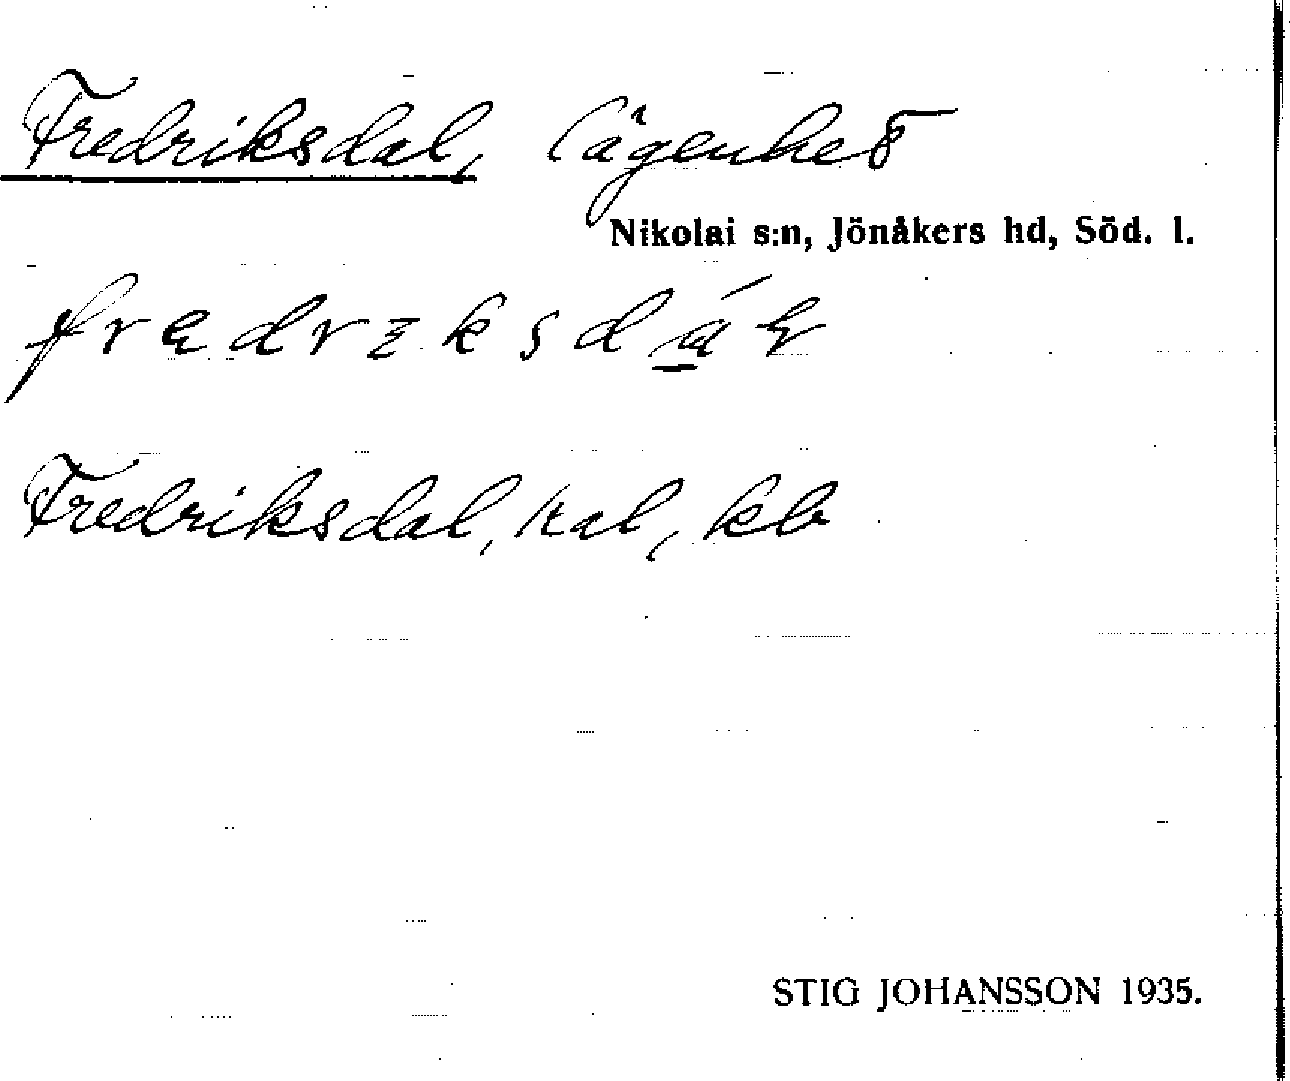 Fredriksdal, lägenhet
Nikolai s:n, Jönåkers hd, Söd. l.
Fredriksdal, kal, kb
STIG JOHANSSON 1935.